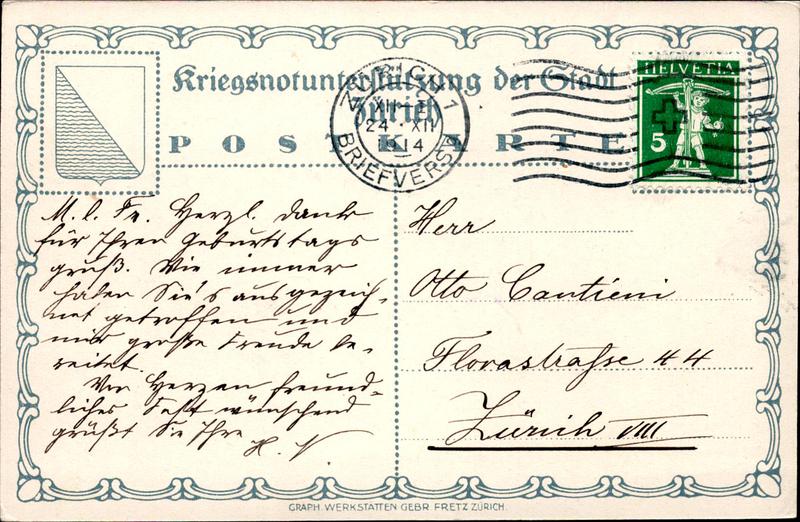 Kriegsnotunterstützung der Stadt
Zürich
POSTKARTE
ZÜRICH 1
XII-1
24 XII
14
BRIEFVERS.
HELVETIA
5
M. l. Fr. Herzl. Dank
für Ihren Geburtstags
gruß. Wie immer
haben Sie's ausgezeich-
net getroffen und
mir große Freude be-
reitet.
Von Herzen freund-
liches Fest wünschend
grüßt Sie Ihre
H. V.
Herr
Otto Cantieni
Florastrasse 44
Zürich VIII
GRAPH. WERKSTÄTTEN GEBR. FRETZ ZÜRICH.